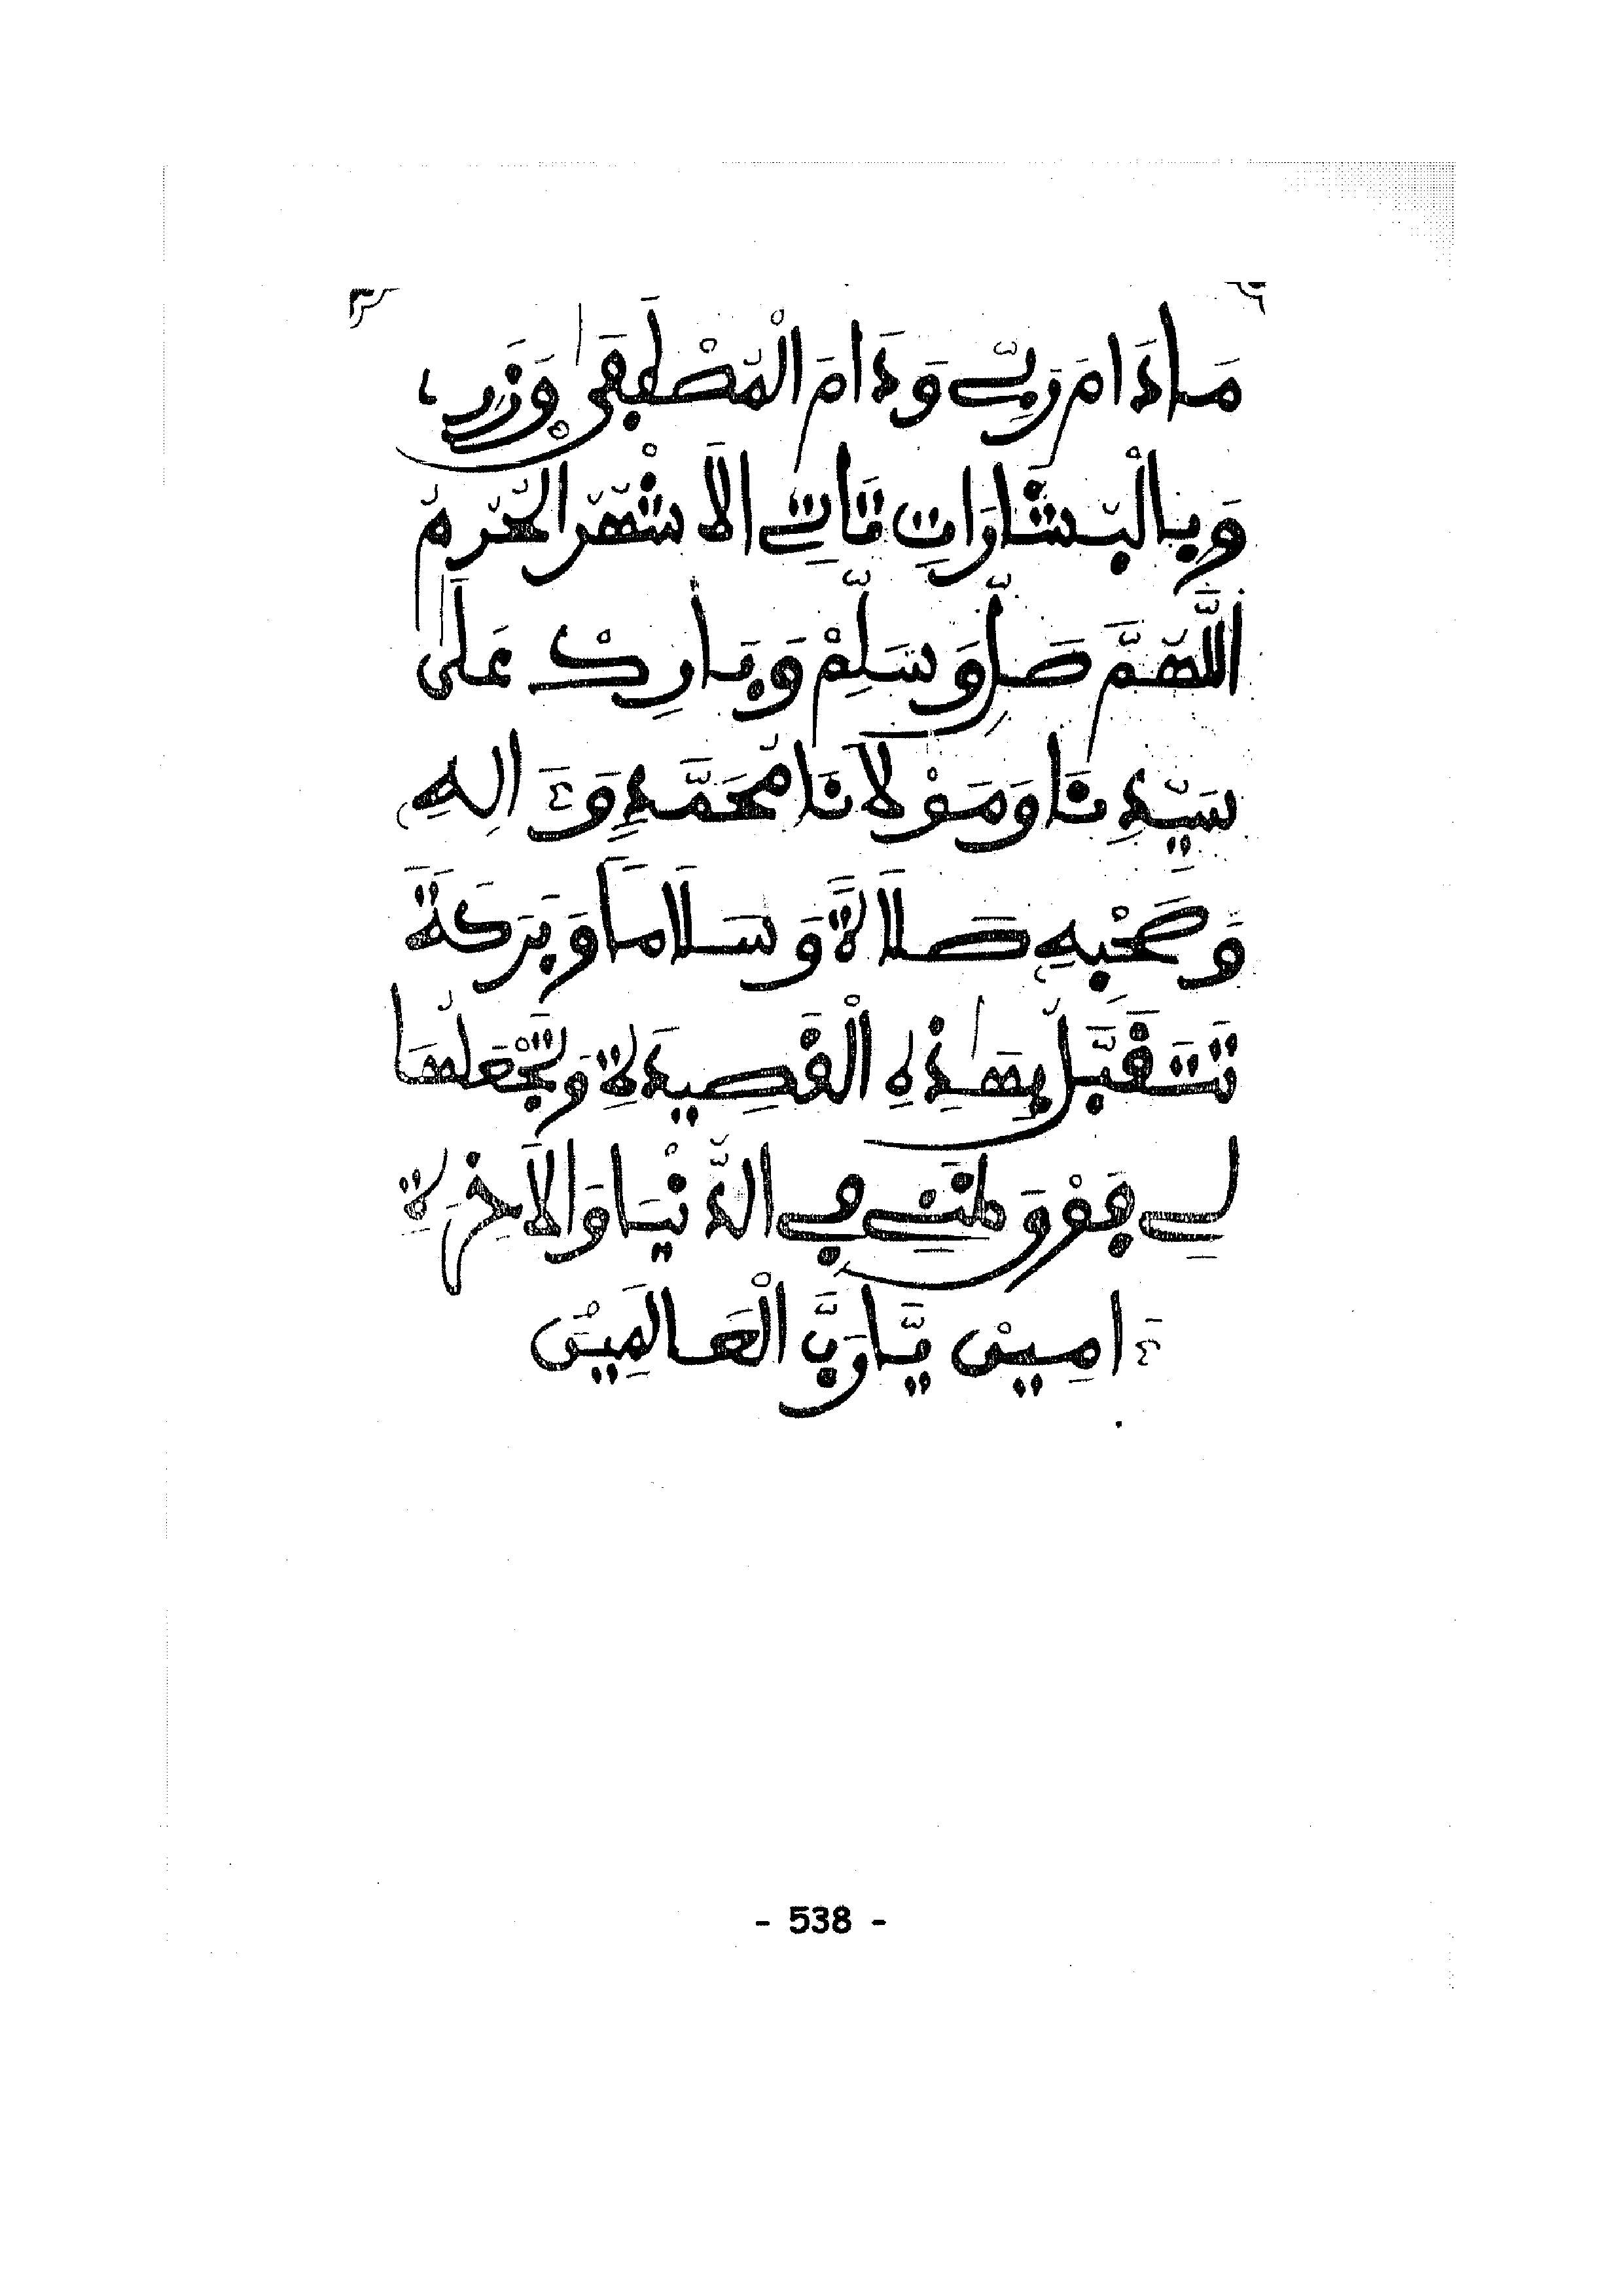 مَادَامَ رَبِّي وَدَامَ الْمُصْطَفَى وَزَرِي
وَبِالْبَشَارَاتِ تَاتِي الاَشْهُرُ الْحُرُمُ
اللَّهُمَّ صَلِّ وَسَلِّمْ وَبَارِكْ عَلَى
سَيِّدِنَا وَمَوْلَانَا مُحَمَّدٍ وَءَالِهِ
وَصَحْبِهِ صَلَاةً وَسَلَامًا وَبَرَكَةً
تَتَقَبَّلُ بِهَذِهِ الْقَصِيدَةِ وَتَجْعَلُهَا
لِي فَوْقَ ظَنِّي فِي الدُّنْيَا وَالاَخِرَةِ
ءَامِينْ يَّا رَبَّ الْعَالَمِينْ
- 538 -